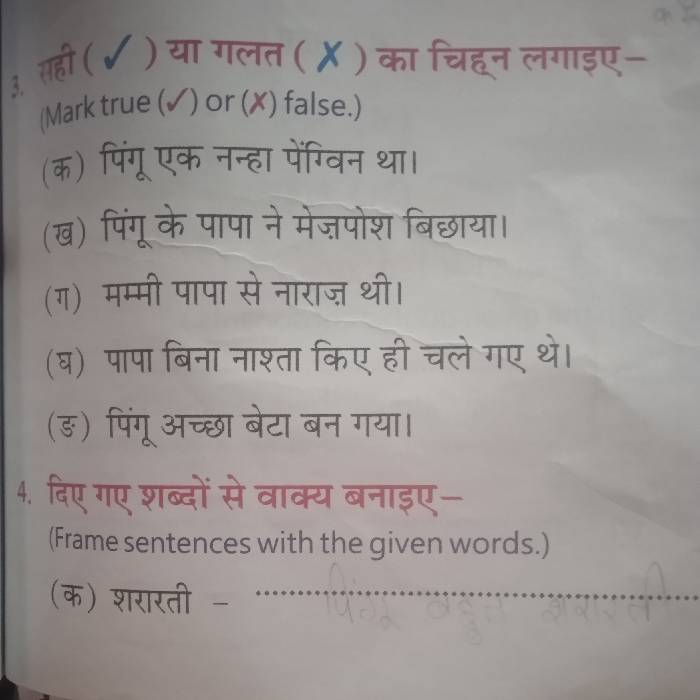 3. सही (✓) या गलत (✗) का चिह्न लगाइए–
(Mark true (✓) or (✗) false.)
(क) पिंगू एक नन्हा पेंग्विन था।
(ख) पिंगू के पापा ने मेज़पोश बिछाया।
(ग) मम्मी पापा से नाराज़ थी।
(घ) पापा बिना नाश्ता किए ही चले गए थे।
(ङ) पिंगू अच्छा बेटा बन गया।
4. दिए गए शब्दों से वाक्य बनाइए–
(Frame sentences with the given words.)
(क) शरारती – पिंगू बहुत शरारती